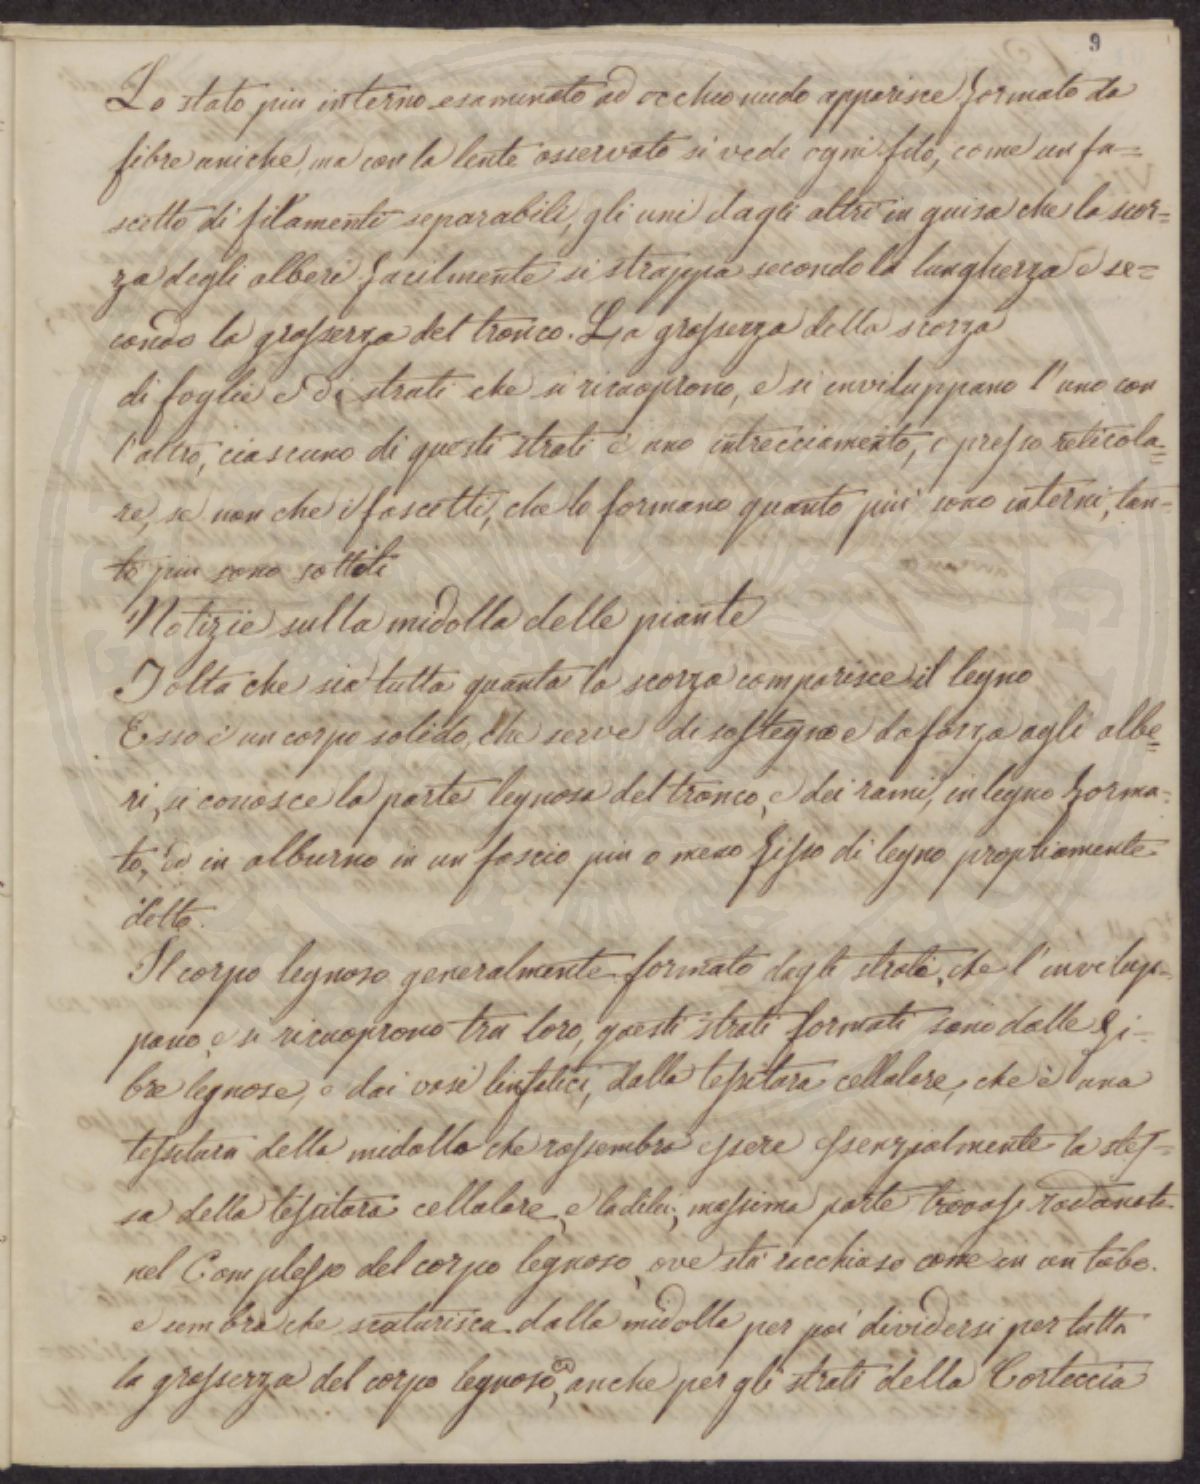 9
Lo stato piu interno esaminato ad occhio nudo apparisce formato da
fibre uniche, ma con la lente osservato si vede ogni filo, come un fa=
scetto di filamenti separabili, gli uni dagli altri in guisa che la scor=
za degli alberi facilmente si strappa secondo la lunghezza e se=
condo la grossezza del tronco. La grossezza della scorza
di foglie e di strati che si ricuoprono, e si inviluppano l'uno con
l'altro, ciascuno di questi strati è uno intrecciamento, e presso reticola=
re, se non che i fascetti, che lo formano quanto piu sono interni, tan=
to piu sono sottili
Notizie sulla midolla delle piante
Tolta che sia tutta quanta la scorza comparisce il legno
Esso è un corpo solido, che serve di sostegno e da forza agli albe=
ri, si conosce la parte legnosa del tronco, e dei rami, in legno forma=
to, ed in alburno in un fascio piu o meno fisso di legno propriamente
detto.
Il corpo legnoso generalmente formato dagli strati, che l'invilup=
pano, e si ricuoprono tra loro, questi strati formati sono dalle fi=
bre legnose, e dai vasi linfatici, dalla tessitura cellulare, che è una
tessitura della midolla che rassembra essere essenzialmente la stes=
sa della tessitura cellulare, e la di lei, massima parte trovasi radunata
nel Complesso del corpo legnoso, ove sta racchiuso come in un tubo.
e sembra che scaturisca dalla midolla per poi dividersi per tutta
la grossezza del corpo legnoso, anche per gli strati della Corteccia